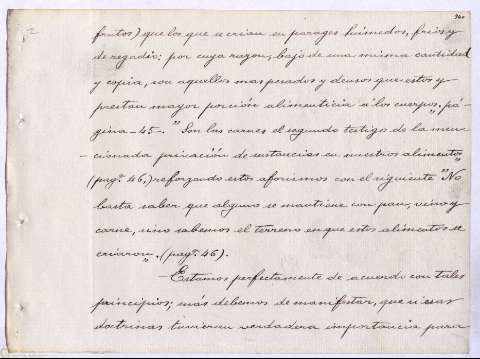 frutos) que los que se crian en parages húmedos, frios y
de regadio: por cuya razon, bajo de una misma cantidad
y copia, son aquellos mas pesados y densos que estos y
prestan mayor porción alimenticia á los cuerpos", pá-
gina-45- "Son las carnes el segundo testigo de la men-
cionada privación de sustancias en nuestros alimentos"
(pagª. 46,) reforzando estos aforismos con el siguiente "No
basta saber que alguno se mantiene con pan, vino y
carne, sino sabemos el terreno en que estos alimentos se
criaron". (pagª. 46).
Estamos perfectamente de acuerdo con tales
principios; más debemos de manifestar, que si esas
doctrinas tuvieron verdadera importancia para